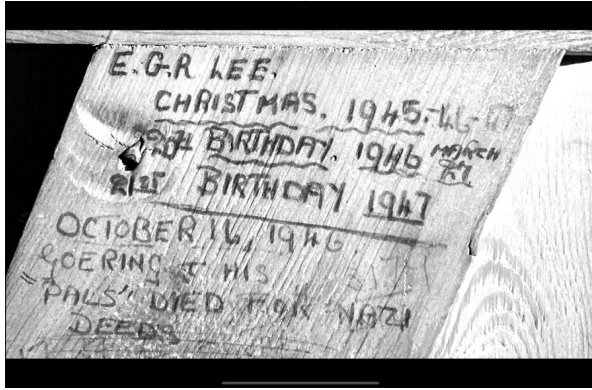 E.G.R LEE.
CHRISTMAS. 1945.-46-47
BIRTHDAY. 1946 MARCH
BIRTHDAY 1947
OCTOBER 16, 1946
GOERING & HIS
"PALS" DIED FOR NAZI
DEEDS